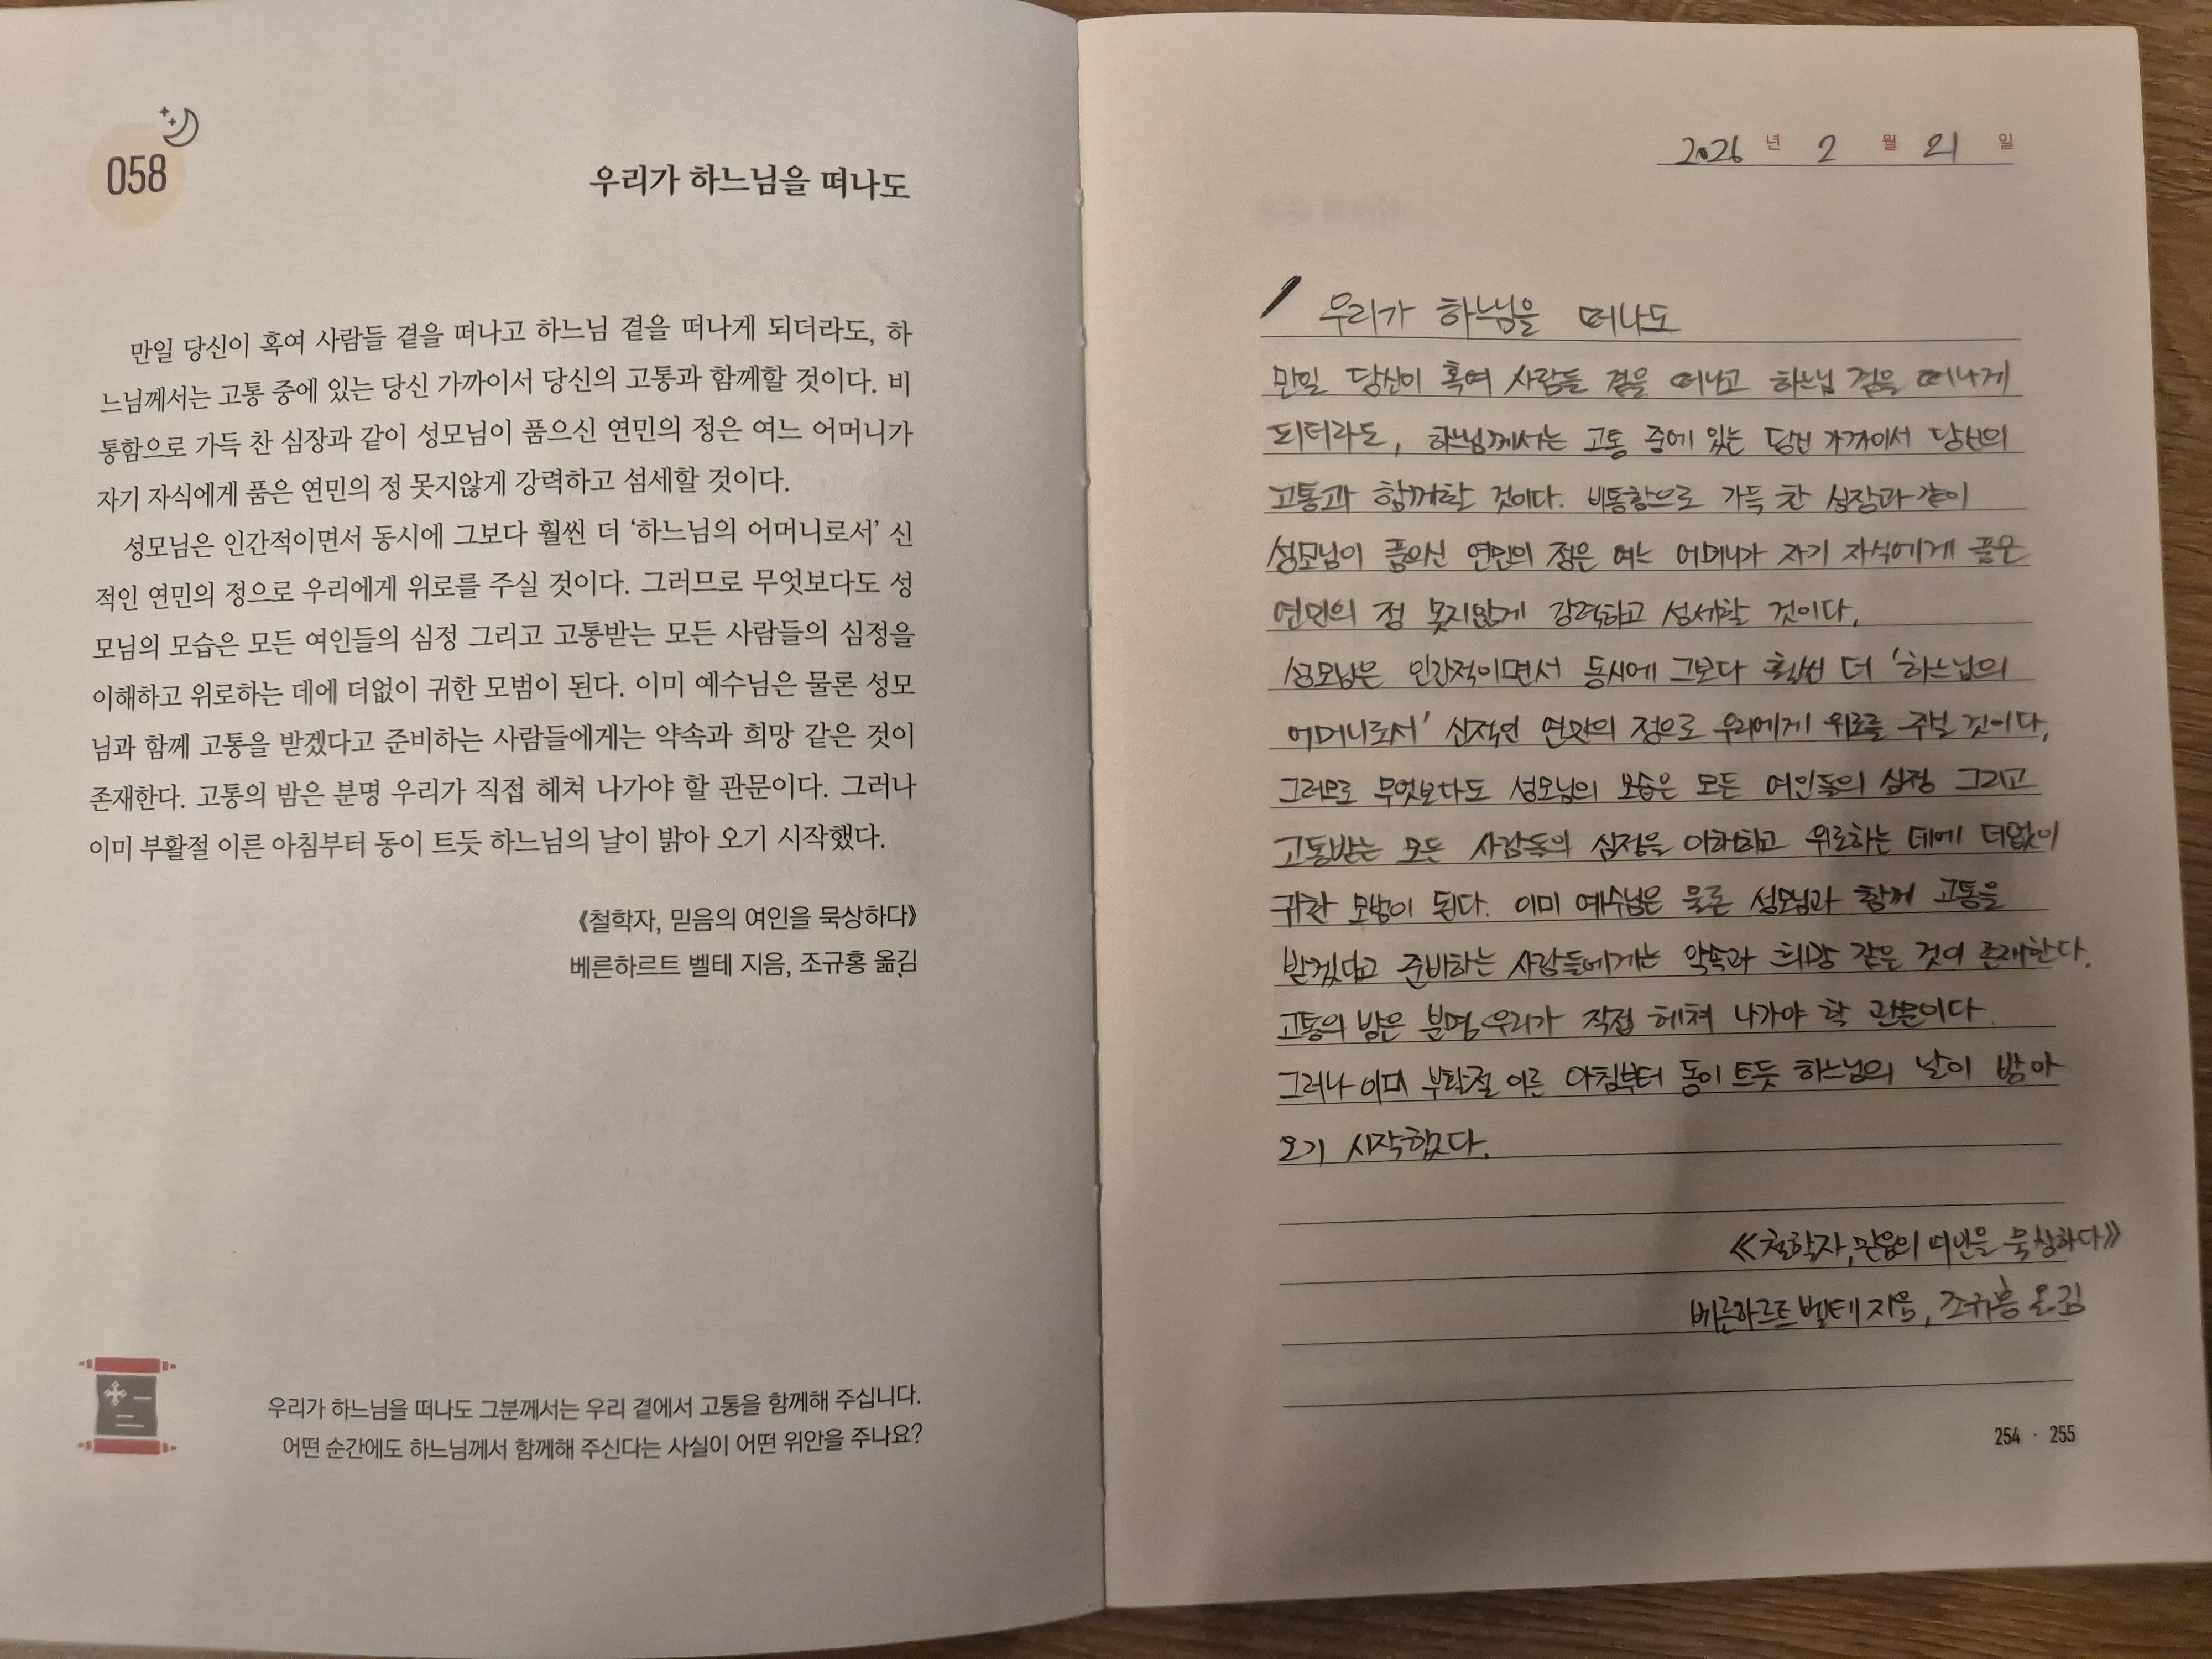 058
우리가 하느님을 떠나도
만일 당신이 혹여 사람들 곁을 떠나고 하느님 곁을 떠나게 되더라도, 하
느님께서는 고통 중에 있는 당신 가까이서 당신의 고통과 함께할 것이다. 비
통함으로 가득 찬 심장과 같이 성모님이 품으신 연민의 정은 여느 어머니가
자기 자식에게 품은 연민의 정 못지않게 강력하고 섬세할 것이다.
성모님은 인간적이면서 동시에 그보다 훨씬 더 ‘하느님의 어머니로서’ 신
적인 연민의 정으로 우리에게 위로를 주실 것이다. 그러므로 무엇보다도 성
모님의 모습은 모든 여인들의 심정 그리고 고통받는 모든 사람들의 심정을
이해하고 위로하는 데에 더없이 귀한 모범이 된다. 이미 예수님은 물론 성모
님과 함께 고통을 받겠다고 준비하는 사람들에게는 약속과 희망 같은 것이
존재한다. 고통의 밤은 분명 우리가 직접 헤쳐 나가야 할 관문이다. 그러나
이미 부활절 이른 아침부터 동이 트듯 하느님의 날이 밝아 오기 시작했다.
《철학자, 믿음의 여인을 묵상하다》
베른하르트 벨테 지음, 조규홍 옮김
우리가 하느님을 떠나도 그분께서는 우리 곁에서 고통을 함께해 주십니다.
어떤 순간에도 하느님께서 함께해 주신다는 사실이 어떤 위안을 주나요?
2026 년 2 월 21 일
우리가 하느님을 떠나도
만일 당신이 혹여 사람들 곁을 떠나고 하느님 곁을 떠나게
되더라도, 하느님께서는 고통 중에 있는 당신 가까이서 당신의
고통과 함께할 것이다. 비통함으로 가득 찬 심장과 같이
성모님이 품으신 연민의 정은 여느 어머니가 자기 자식에게 품은
연민의 정 못지않게 강력하고 섬세할 것이다.
성모님은 인간적이면서 동시에 그보다 훨씬 더 '하느님의
어머니로서' 신적인 연민의 정으로 우리에게 위로를 주실 것이다.
그러므로 무엇보다도 성모님의 모습은 모든 여인들의 심정 그리고
고통받는 모든 사람들의 심정을 이해하고 위로하는 데에 더없이
귀한 모범이 된다. 이미 예수님은 물론 성모님과 함께 고통을
받겠다고 준비하는 사람들에게는 약속과 희망 같은 것이 존재한다.
고통의 밤은 분명 우리가 직접 헤쳐 나가야 할 관문이다.
그러나 이미 부활절 이른 아침부터 동이 트듯 하느님의 날이 밝아
오기 시작했다.
《철학자, 믿음의 묵상하다》
베른하르트 벨테 지음, 조규홍 옮김
254 · 255